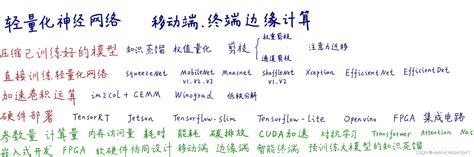 轻量化神经网络 移动端.终端边缘计算
压缩已训练好的模型 知识蒸馏 权值量化 剪枝 权重剪枝 通道剪枝 注意力迁移
直接训练轻量化网络 SqueezeNet MobileNet V1.V2.V3 Mnasnet ShuffleNet V1.V2 Xception EfficientNet EfficientDet
加速卷积运算 im2col + GEMM Winograd 低秩分解
硬件部署 TensorRT Jetson Tensorflow-slim Tensorflow-lite Openvino FPGA 集成电路
参数量 计算量 内存访问量 耗时 能耗 碳排放 CUDA加速 对抗学习 Transformer Attention Nas
嵌入式开发 FPGA 软硬件协同设计 移动端 边缘端 智能终端 预训练大模型的知识蒸馏